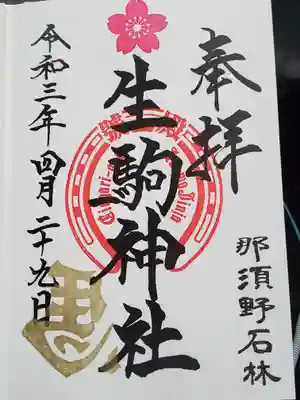 奉拝
那須野石林
生駒神社
Jinja
令和三年四月二十九日
馬